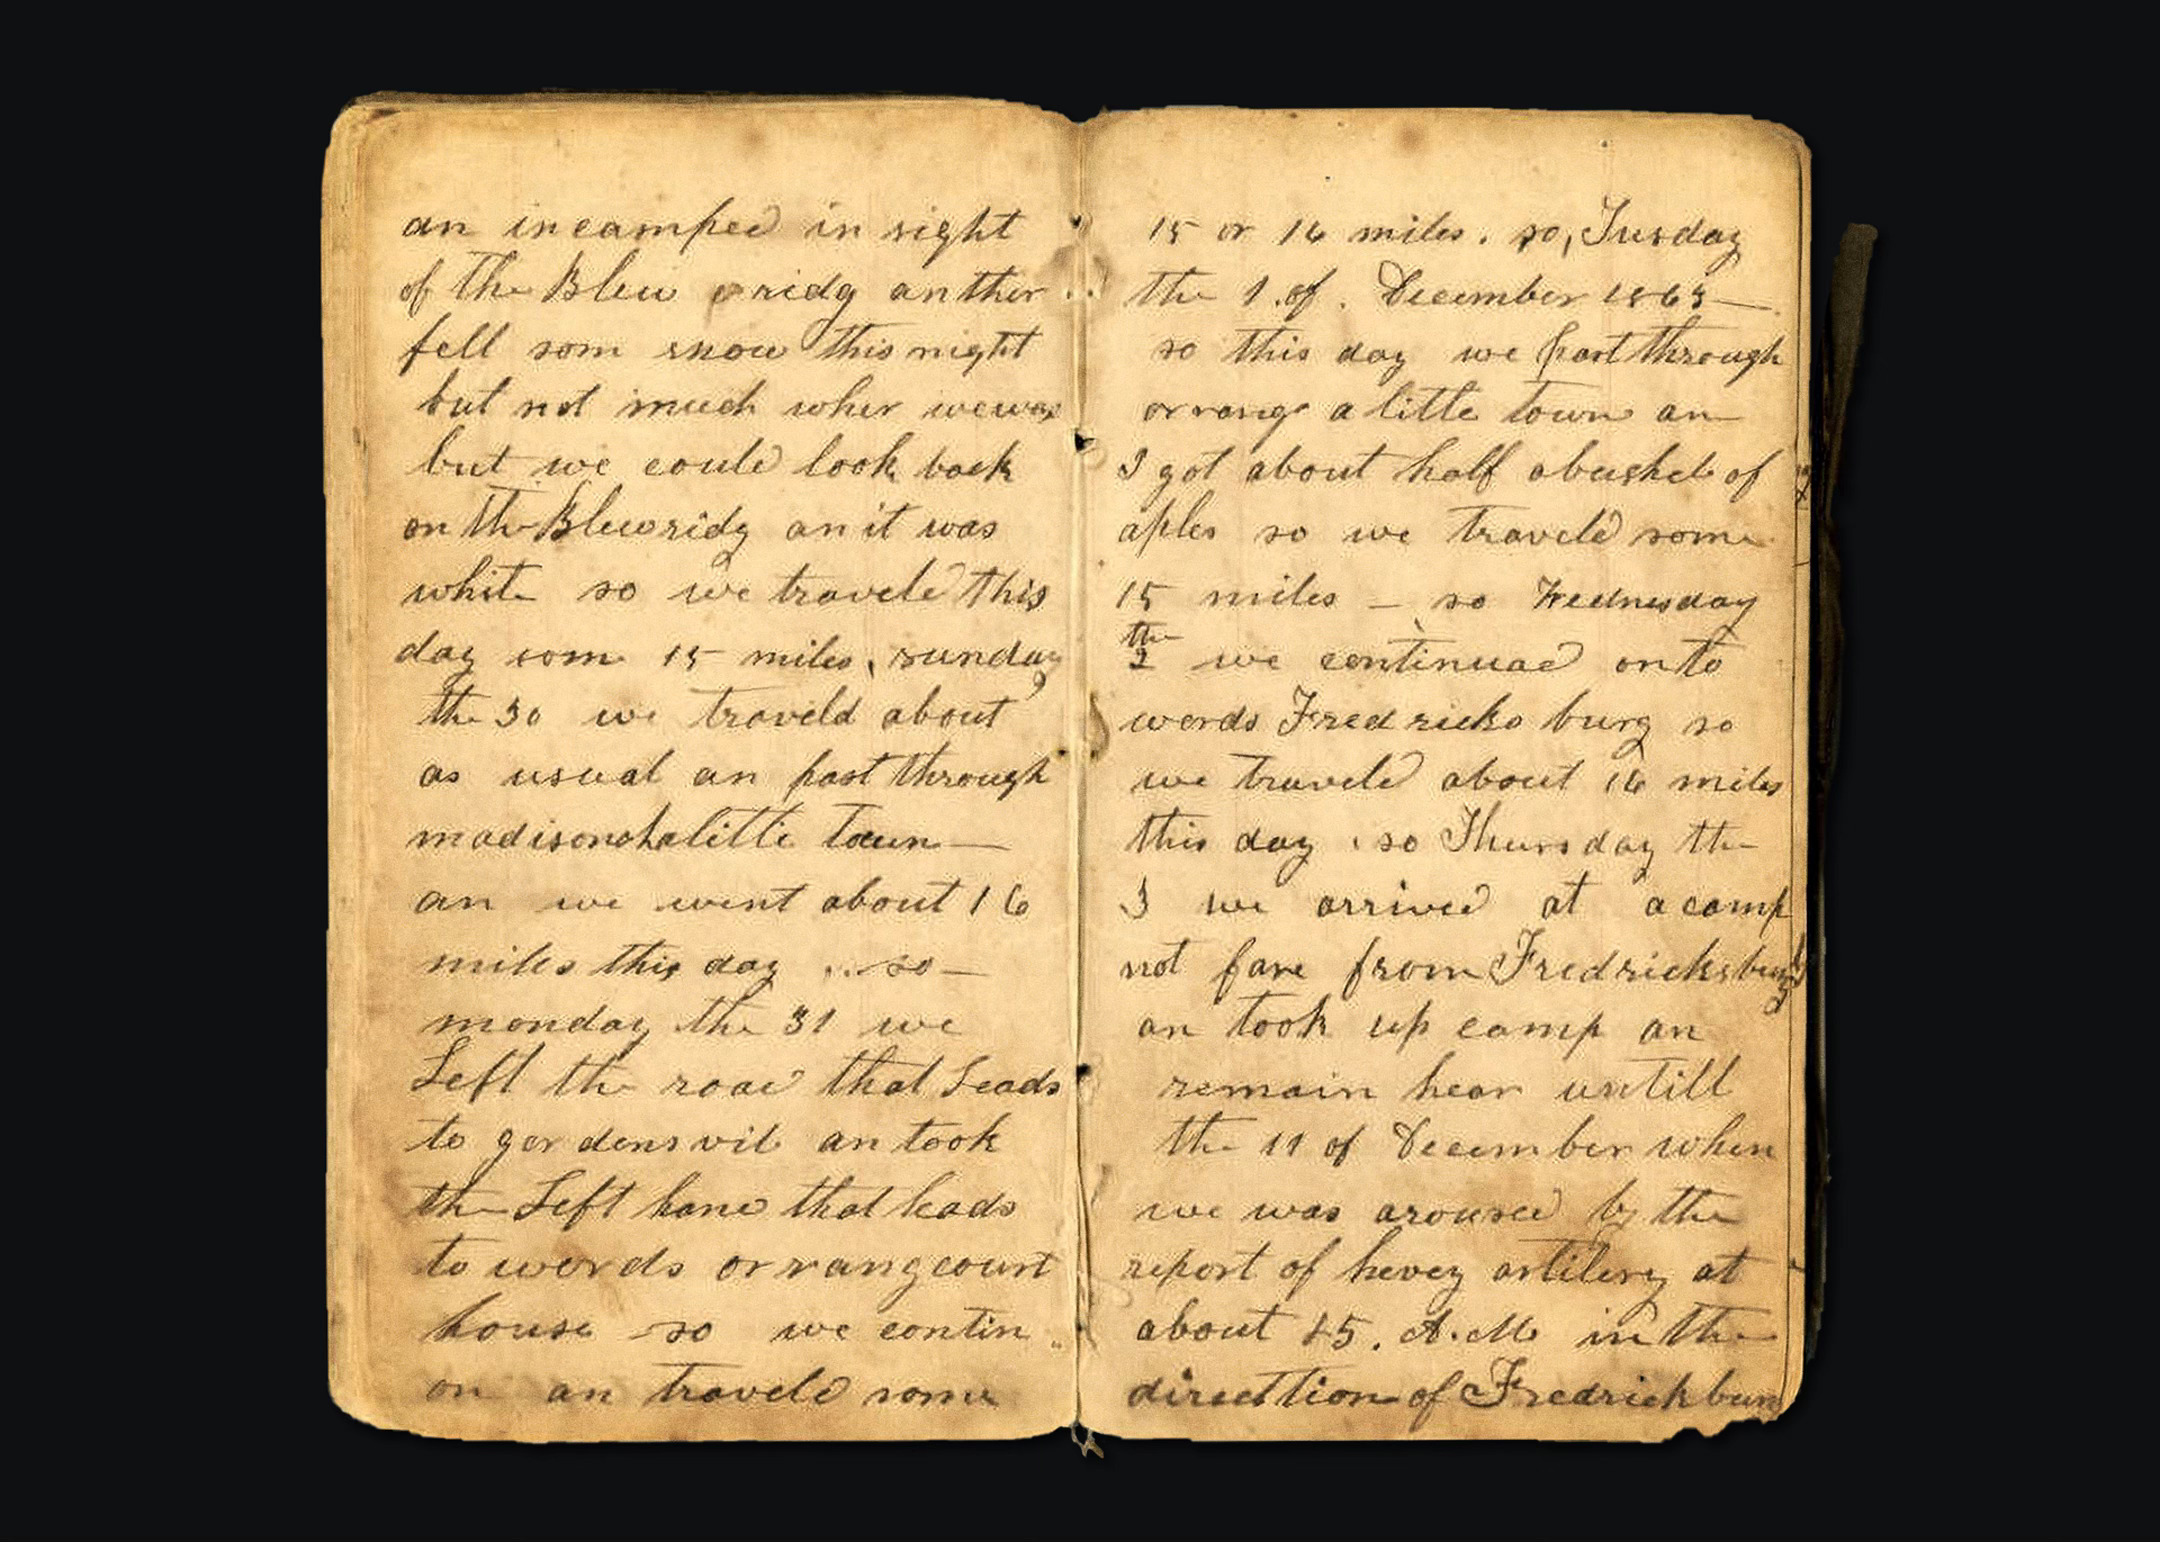 an incamped in sight
of the Blew ridg an ther
fell som snow this night
but not much wher we was
but we could look back
on the Blewridg an it was
whit so we traveled this
day som 15 miles, sunday
the 30 we traveld about
as usual an past through
madison a little town —
an we went about 16
miles this day .. so —
monday the 31 we
Left the road that Leads
to gordensvil an took
the Left hand that leads
to words orrang court
house so we contin
on an traveld some
15 or 16 miles. so, Tusday
the 1. of. December 1863 —
so this day we past through
orrang a little town an
I got about half a bushel of
aples so we traveld some
15 miles — so Wednesday
the
2 we continuad on to
words Fredricks burg so
we traveld about 16 miles
this day. so Thursday the
3 we arrived at a camp
not fare from Fredricksburg
an took up camp an
remain hear untill
the 11 of December when
we was aroused by the
report of hevey artilery at
about 45. A.M in the
directtion of Fredrickburg